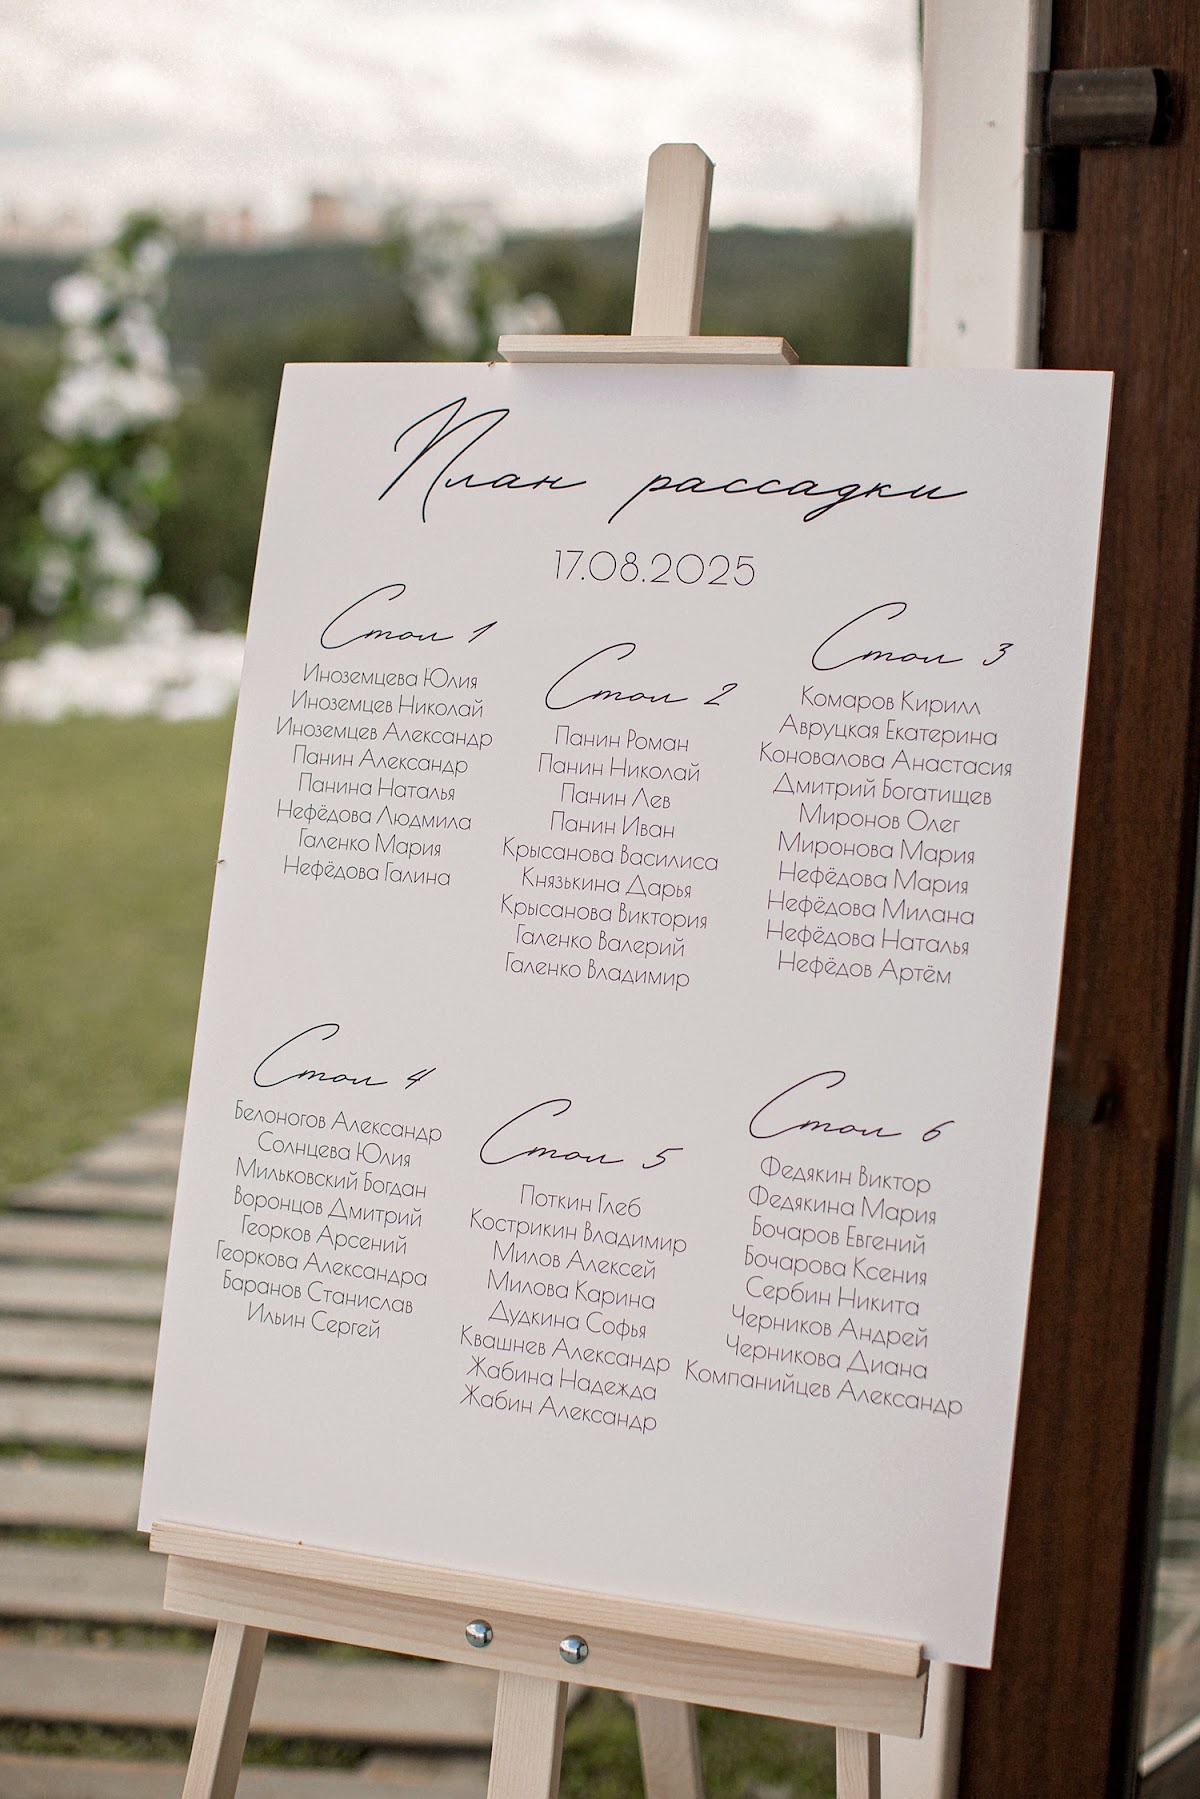 План рассадки
17.08.2025
Стол 1
Иноземцева Юлия
Иноземцев Николай
Иноземцев Александр
Панин Александр
Панина Наталья
Нефёдова Людмила
Галенко Мария
Нефёдова Галина
Стол 2
Панин Роман
Панин Николай
Панин Лев
Панин Иван
Крысанова Василиса
Князькина Дарья
Крысанова Виктория
Галенко Валерий
Галенко Владимир
Стол 3
Комаров Кирилл
Авруцкая Екатерина
Коновалова Анастасия
Дмитрий Богатищев
Миронов Олег
Миронова Мария
Нефёдова Мария
Нефёдова Милана
Нефёдова Наталья
Нефёдов Артём
Стол 4
Белоногов Александр
Солнцева Юлия
Мильковский Богдан
Воронцов Дмитрий
Георков Арсений
Георкова Александра
Баранов Станислав
Ильин Сергей
Стол 5
Поткин Глеб
Кострикин Владимир
Милов Алексей
Милова Карина
Дудкина Софья
Квашнев Александр
Жабина Надежда
Жабин Александр
Стол 6
Федякин Виктор
Федякина Мария
Бочаров Евгений
Бочарова Ксения
Сербин Никита
Черников Андрей
Черникова Диана
Компанийцев Александр